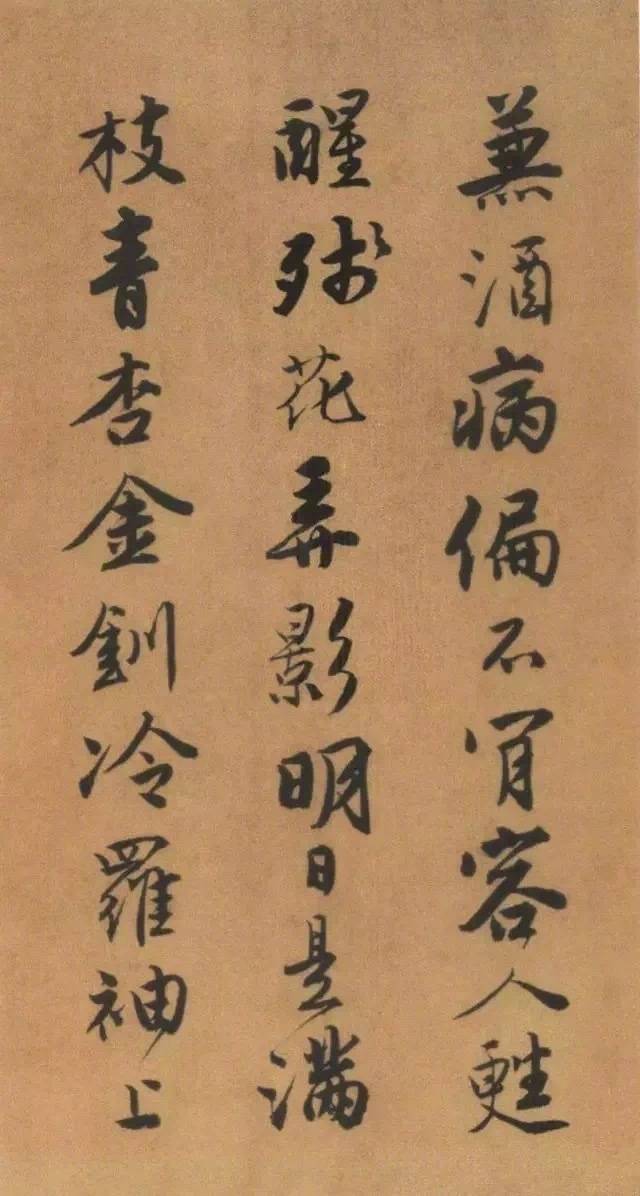 兼酒病偏不肯容人甦
醒殘花弄影明日是滿
枝青杏金釧冷羅袖上